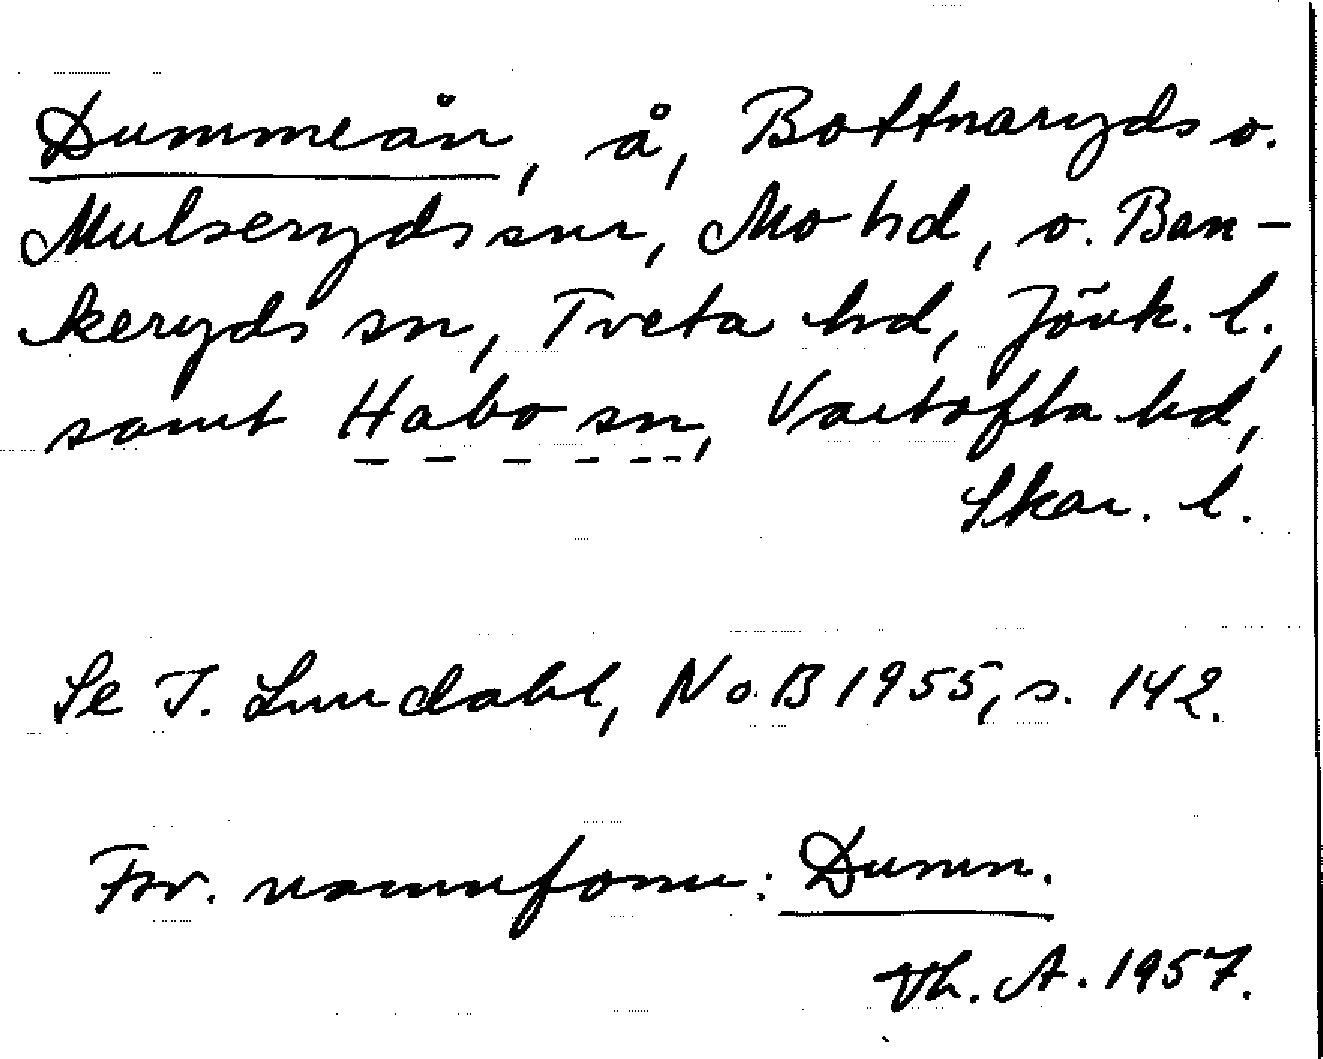 Dummeån, å, Bottnaryds o.
Mulseryds snr, Mo hd, o. Ban-
keryds sn, Tveta hd, Jönk. l.,
samt Habo sn, Vartofta hd,
Skar. l.
Se I. Lundahl, NoB 1955, s. 142.
Fsv. namnform: Dumn.
Th. A. 1957.